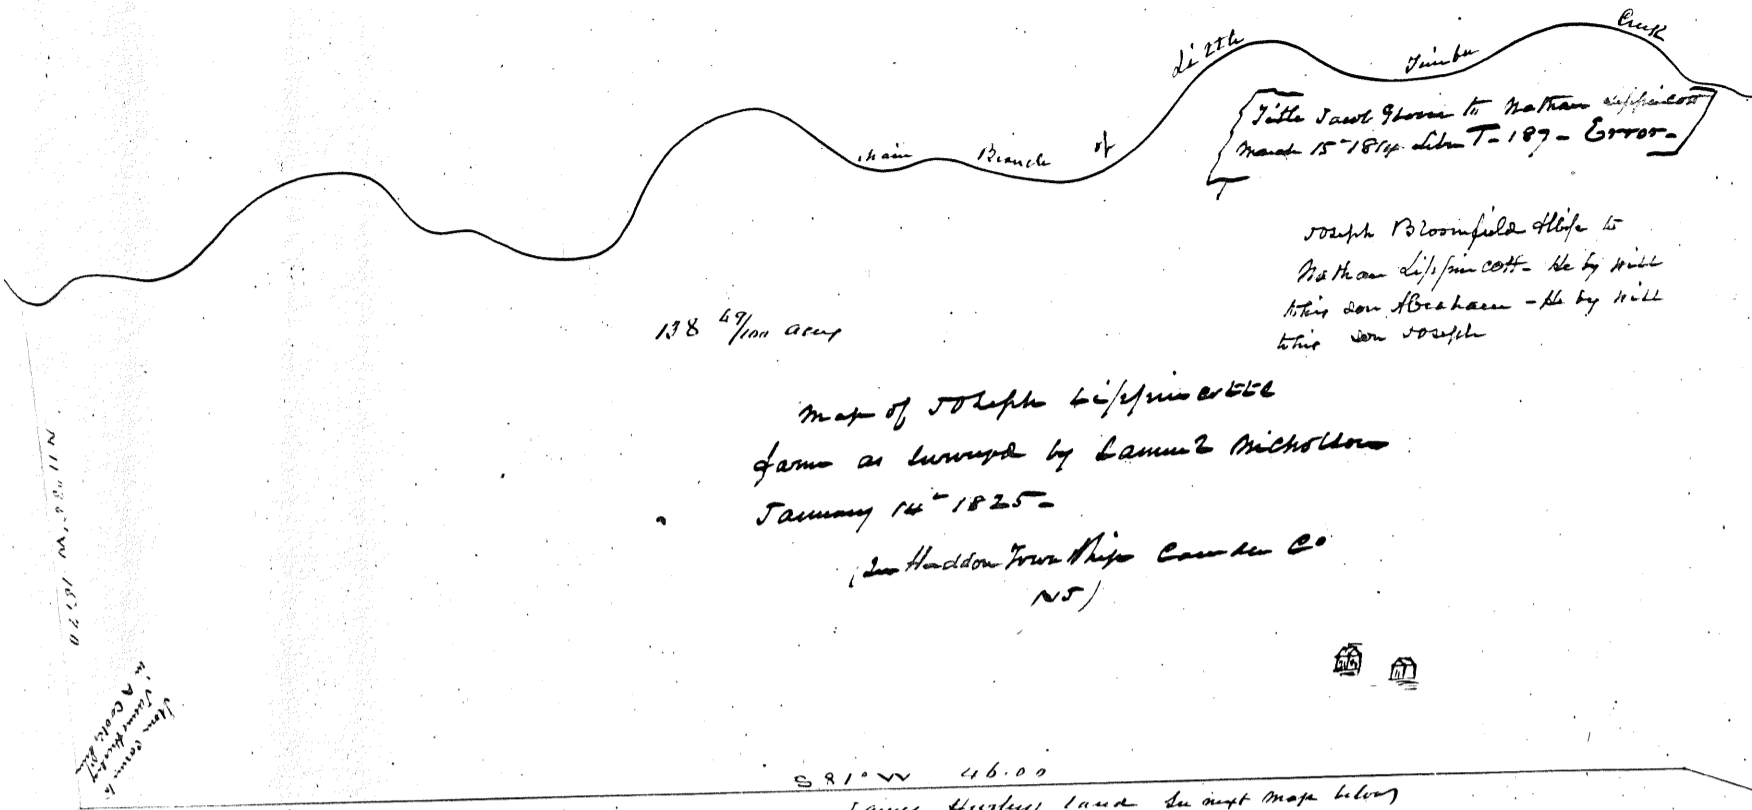 Main Branch of Little Timber Creek
[Title Jacob Glover to Nathan Lippincott
March 15 - 1814 Liber T - 187 - Error -]
Joseph Bloomfield & Wife to
Nathan Lippincott - He by will
to his son Abraham - He by will
to his son Joseph
138 49/100 acres
Map of Joseph Lippincotts
farm as surveyed by Samuel Nicholson
January 14th 1825 -
(In Haddon Township Camden Co
NJ)
W 18.70
Stone Corner to
S 81° W 46.00
James Hurleys land See next map below